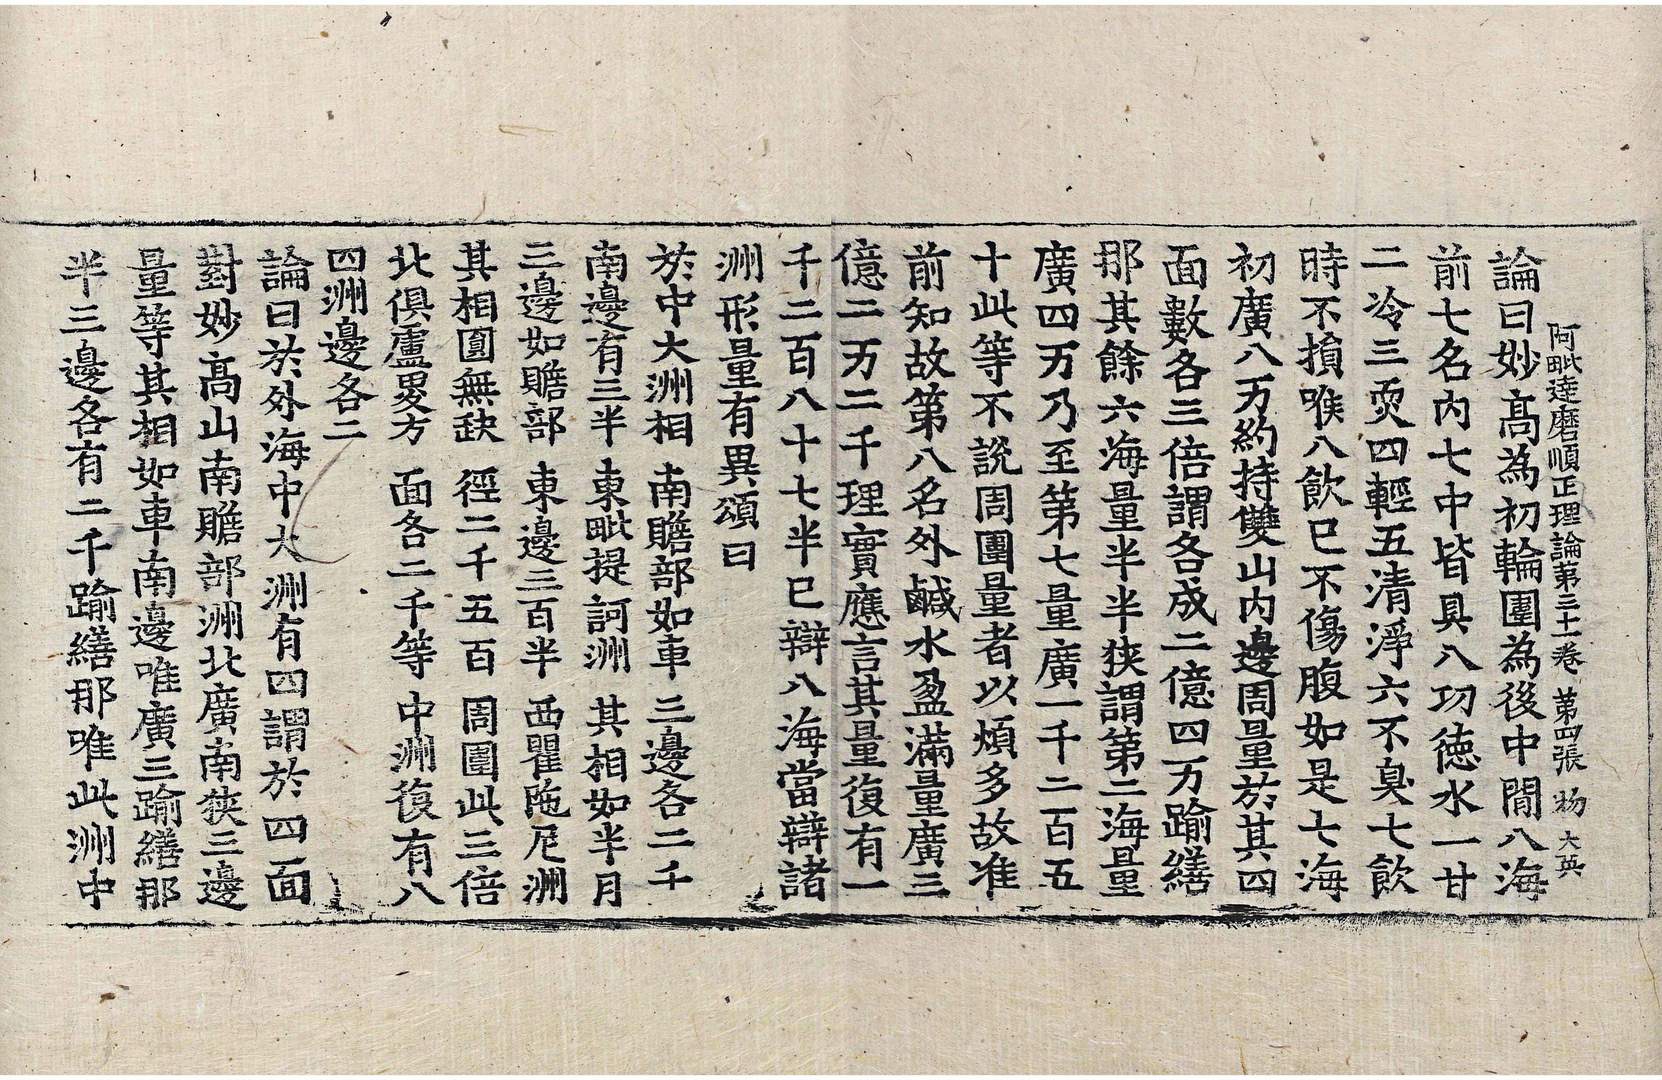 阿毗達磨順正理論第三十一卷 第四張 物 大英
論曰妙高為初輪圍為後中間八海
前七名內七中皆具八功德水一甘
二冷三耎四輕五清淨六不臭七飲
時不損喉八飲已不傷腹如是七海
初廣八万約持雙山內邊周量於其四
面數各三倍謂各成二億四万踰繕
那其餘六海量半半狹謂第二海量
廣四万乃至第七量廣一千二百五
十此等不說周圍量者以煩多故准
前知故第八名外鹹水盈滿量廣三
億二万二千理實應言其量復有一
千二百八十七半已辯八海當辯諸
洲形量有異頌曰
於中大洲相 南贍部如車 三邊各二千
南邊有三半 東毗提訶洲 其相如半月
三邊如贍部 東邊三百半 西瞿陁尼洲
其相圓無缺 徑二千五百 周圍此三倍
北俱盧畟方 面各二千等 中洲復有八
四洲邊各二
論曰於外海中大洲有四謂於四面
對妙高山南贍部洲北廣南狹三邊
量等其相如車南邊唯廣三踰繕那
半三邊各有二千踰繕那唯此洲中